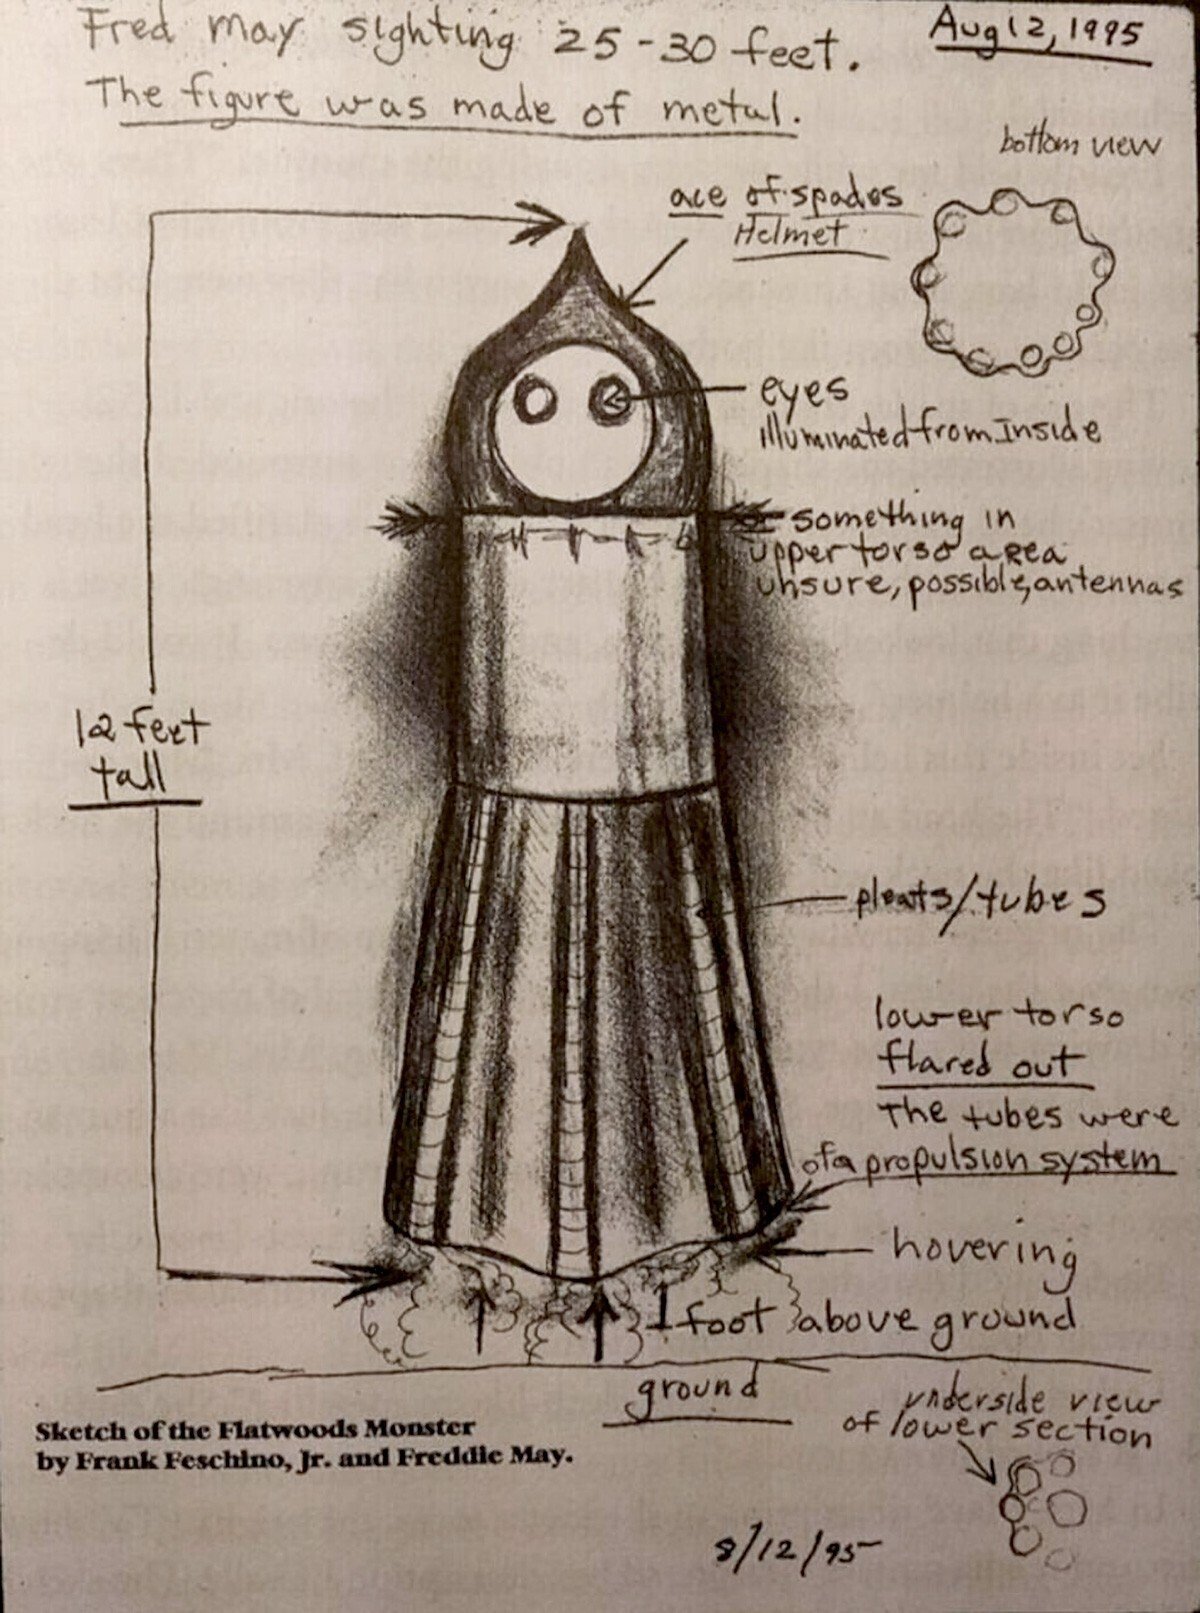 Fred may sighting 25-30 feet.
Aug 12, 1995
The figure was made of metal.
bottom view
ace of spades
Helmet
eyes
illuminated from inside
something in
upper torso area
unsure, possible, antennas
12 feet
tall
pleats/tubes
lower torso
flared out
The tubes were
of a propulsion system
hovering
1 foot above ground
ground
underside view
of lower section
Sketch of the Flatwoods Monster
by Frank Feschino, Jr. and Freddie May.
8/12/95